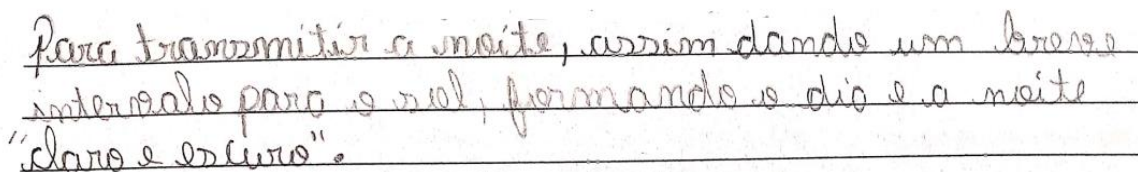 Para transmitir a noite, assim dando um breve
intervalo para o sol, formando o dia e a noite
"claro e escuro".